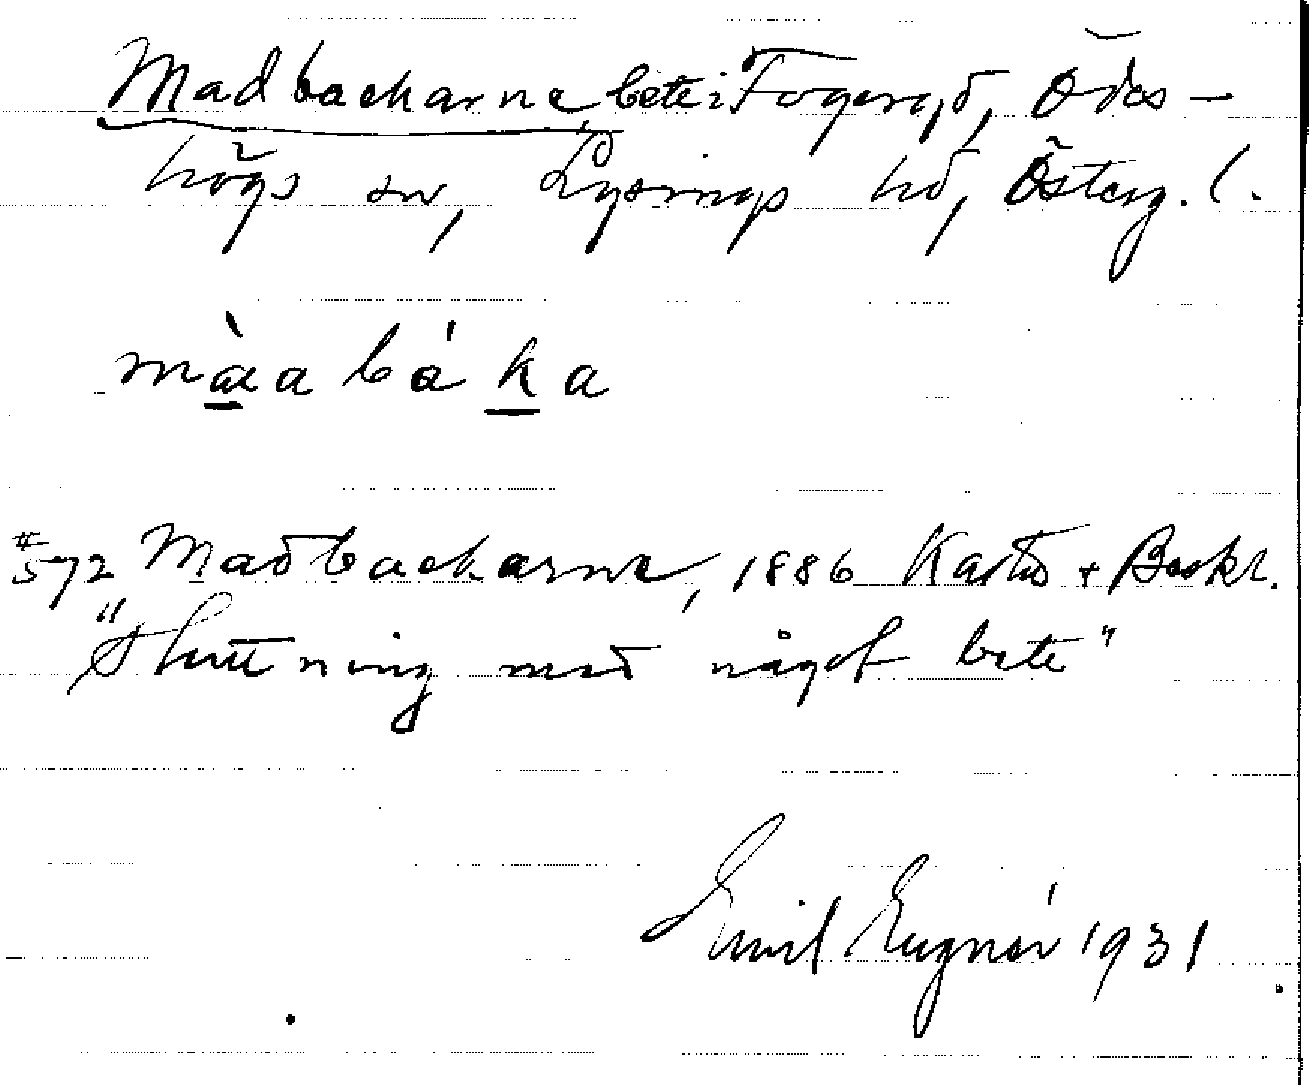 Madbackarne, bete i Fogeryd, Ödes-
högs sn, Lysings hd, Österg. l.
màabákа
#572 Madbackarne, 1886 Karta + Beskr.
"Sluttning med något bete"
Emil Eugnér 1931